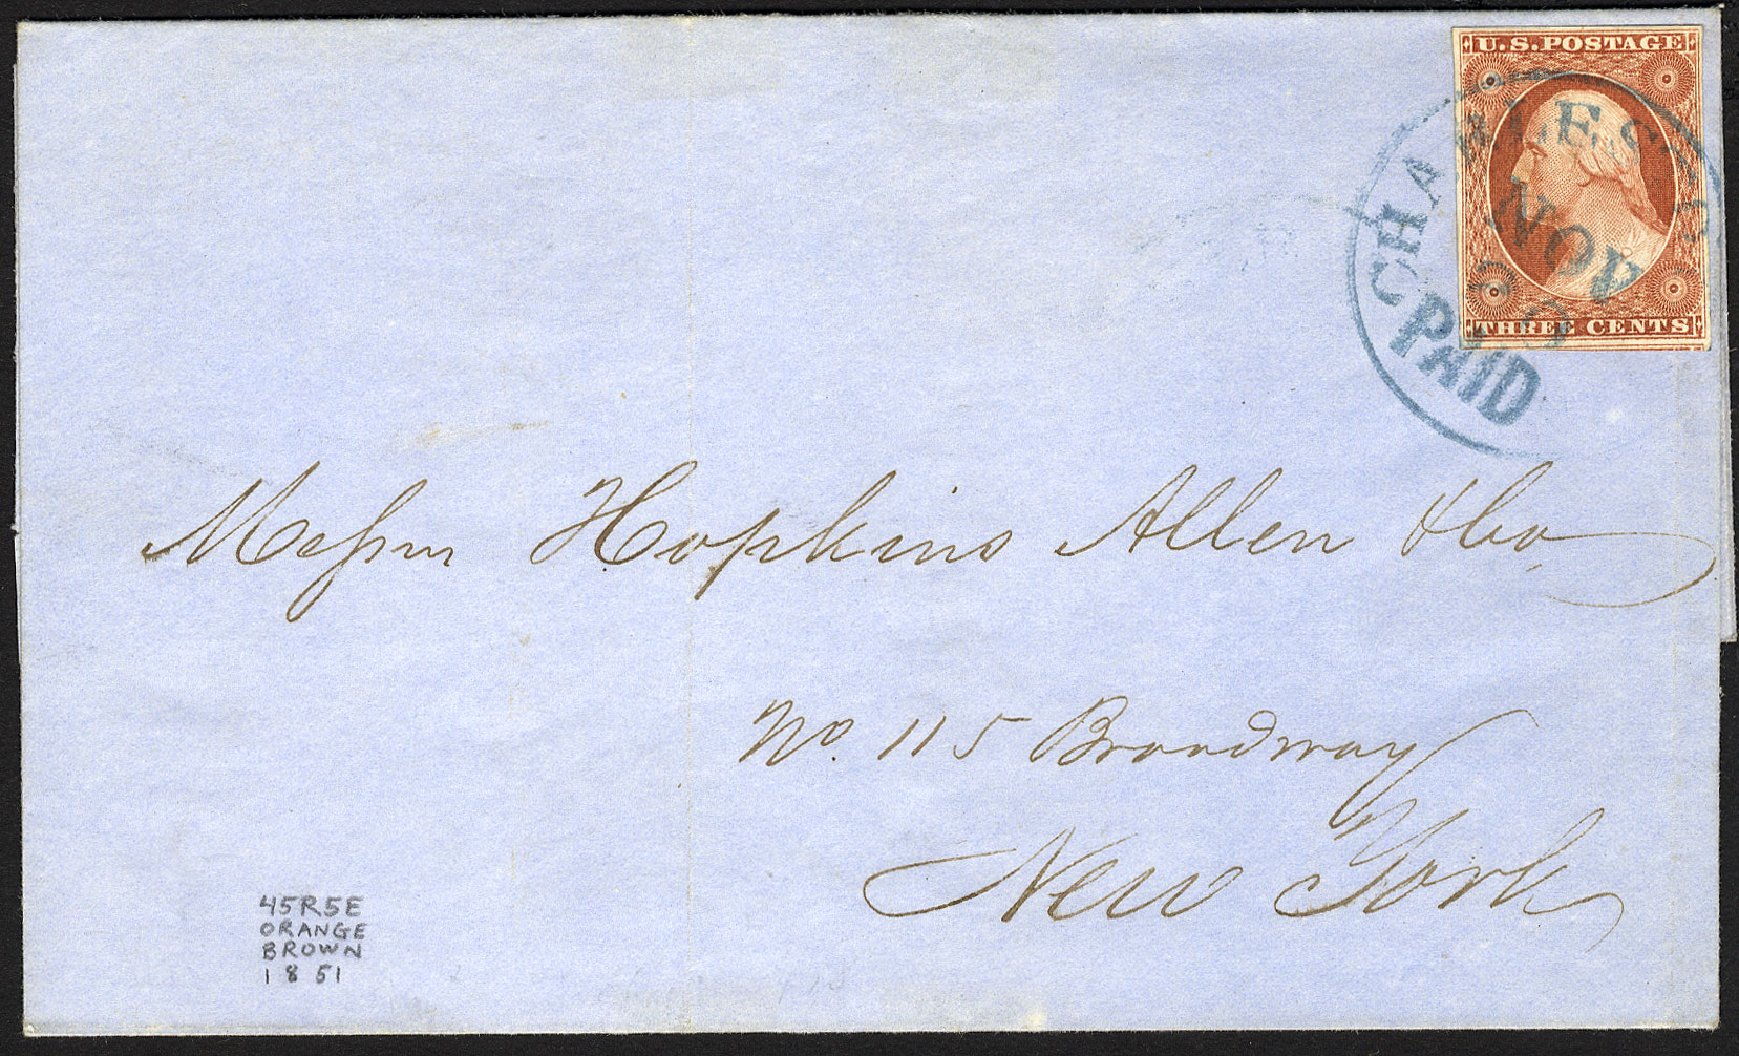 U.S. POSTAGE
THREE CENTS
CHARLESTO
NOV
PAID
Messrs Hopkins Allen & Co
No. 115 Broadway
New York
45R5E
ORANGE
BROWN
1851